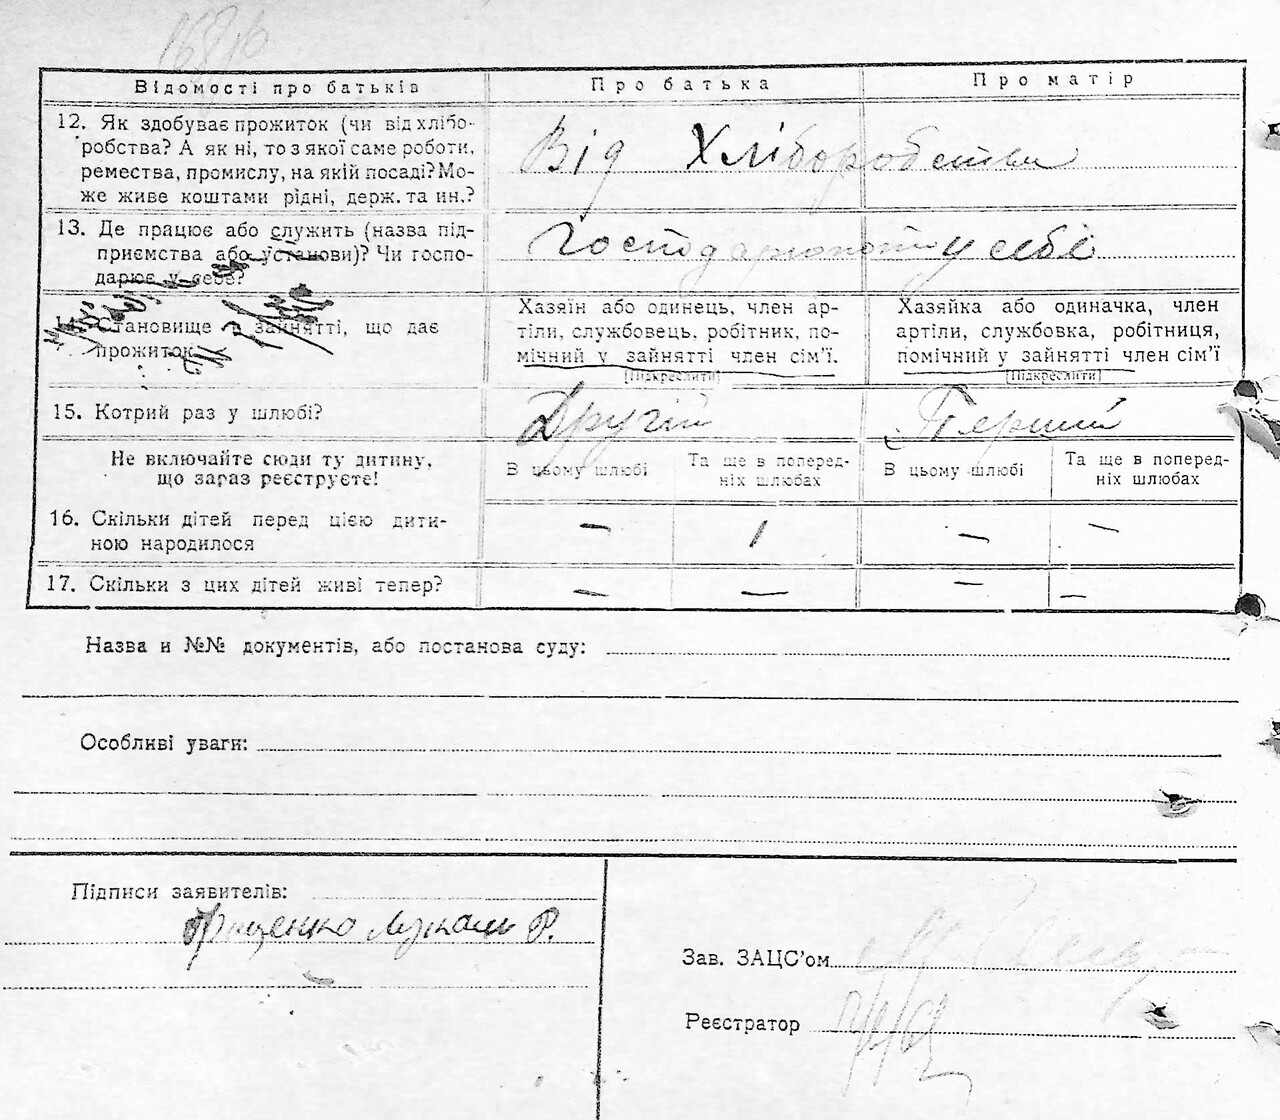 Відомості про батьків
Про батька
Про матір
12. Як здобуває прожиток (чи від хлібо-
робства? А як ні, то з якої саме роботи,
ремества, промислу, на якій посаді? Мо-
же живе коштами рідні, держ. та ин.?
Від Хліборобства
13. Де працює або служить (назва під-
приємства або установи)? Чи госпо-
дарює у себе?
у себе
14. Становище в зайнятті, що дає
прожиток
Хазяїн або одинець, член ар-
тіли, службовець, робітник, по-
мічний у зайнятті член сім'ї.
[Підкреслити]
Хазяйка або одиначка, член
артіли, службовка, робітниця,
помічний у зайнятті член сім'ї
[Підкреслити]
15. Котрий раз у шлюбі?
Другій
Перший
Не включайте сюди ту дитину,
що зараз реєструєте!
В цьому шлюбі
Та ще в поперед-
ніх шлюбах
В цьому шлюбі
Та ще в поперед-
ніх шлюбах
16. Скільки дітей перед цією дити-
ною народилося
— 1 — —
17. Скільки з цих дітей живі тепер?
— — — —
Назва и №№ документів, або постанова суду:
Особливі уваги:
Підписи заявителів:
Р.
Зав. ЗАЦС'ом
Реєстратор